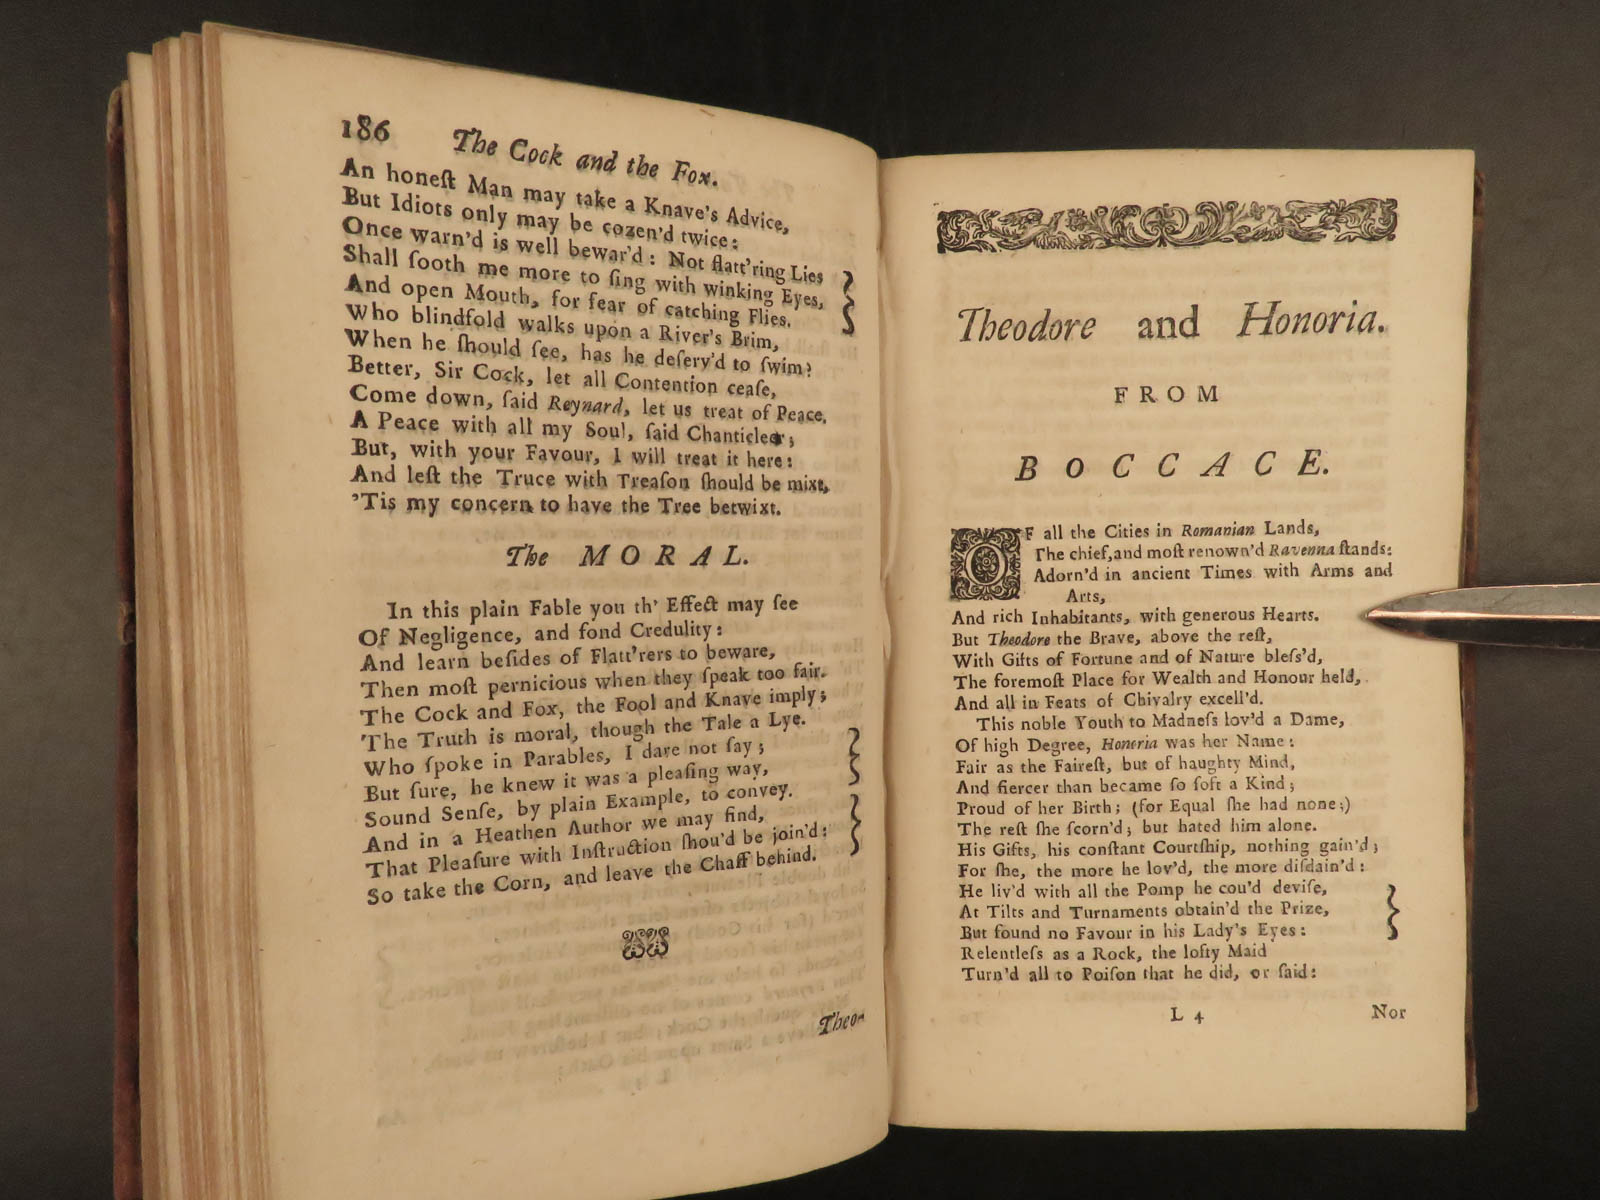 186 The Cock and the Fox.
An honeſt Man may take a Knave's Advice,
But Idiots only may be cozen'd twice:
Once warn'd is well bewar'd: Not flatt'ring Lies
Shall ſooth me more to ſing with winking Eyes,
And open Mouth, for fear of catching Flies.
Who blindfold walks upon a River's Brim,
When he ſhould ſee, has he deſerv'd to ſwim?
Better, Sir Cock, let all Contention ceaſe,
Come down, ſaid Reynard, let us treat of Peace.
A Peace with all my Soul, ſaid Chanticleer;
But, with your Favour, I will treat it here:
And leſt the Truce with Treaſon ſhould be mixt,
'Tis my concern to have the Tree betwixt.
The MORAL.
In this plain Fable you th' Effect may ſee
Of Negligence, and fond Credulity:
And learn beſides of Flatt'rers to beware,
Then moſt pernicious when they ſpeak too fair.
The Cock and Fox, the Fool and Knave imply;
The Truth is moral, though the Tale a Lye.
Who ſpoke in Parables, I dare not ſay;
But ſure, he knew it was a pleaſing way,
Sound Senſe, by plain Example, to convey.
And in a Heathen Author we may find,
That Pleaſure with Inſtruction ſhou'd be join'd:
So take the Corn, and leave the Chaff behind.
Theo-
Theodore and Honoria.
FROM
BOCCACE.
OF all the Cities in Romanian Lands,
The chief, and moſt renown'd Ravenna ſtands:
Adorn'd in ancient Times with Arms and
Arts,
And rich Inhabitants, with generous Hearts.
But Theodore the Brave, above the reſt,
With Gifts of Fortune and of Nature bleſs'd,
The foremoſt Place for Wealth and Honour held,
And all in Feats of Chivalry excell'd.
This noble Youth to Madneſs lov'd a Dame,
Of high Degree, Honoria was her Name:
Fair as the Faireſt, but of haughty Mind,
And fiercer than became ſo ſoft a Kind;
Proud of her Birth; (for Equal ſhe had none;)
The reſt ſhe ſcorn'd; but hated him alone.
His Gifts, his conſtant Courtſhip, nothing gain'd;
For ſhe, the more he lov'd, the more diſdain'd:
He liv'd with all the Pomp he cou'd deviſe,
At Tilts and Turnaments obtain'd the Prize,
But found no Favour in his Lady's Eyes:
Relentleſs as a Rock, the lofty Maid
Turn'd all to Poiſon that he did, or ſaid:
L 4 Nor